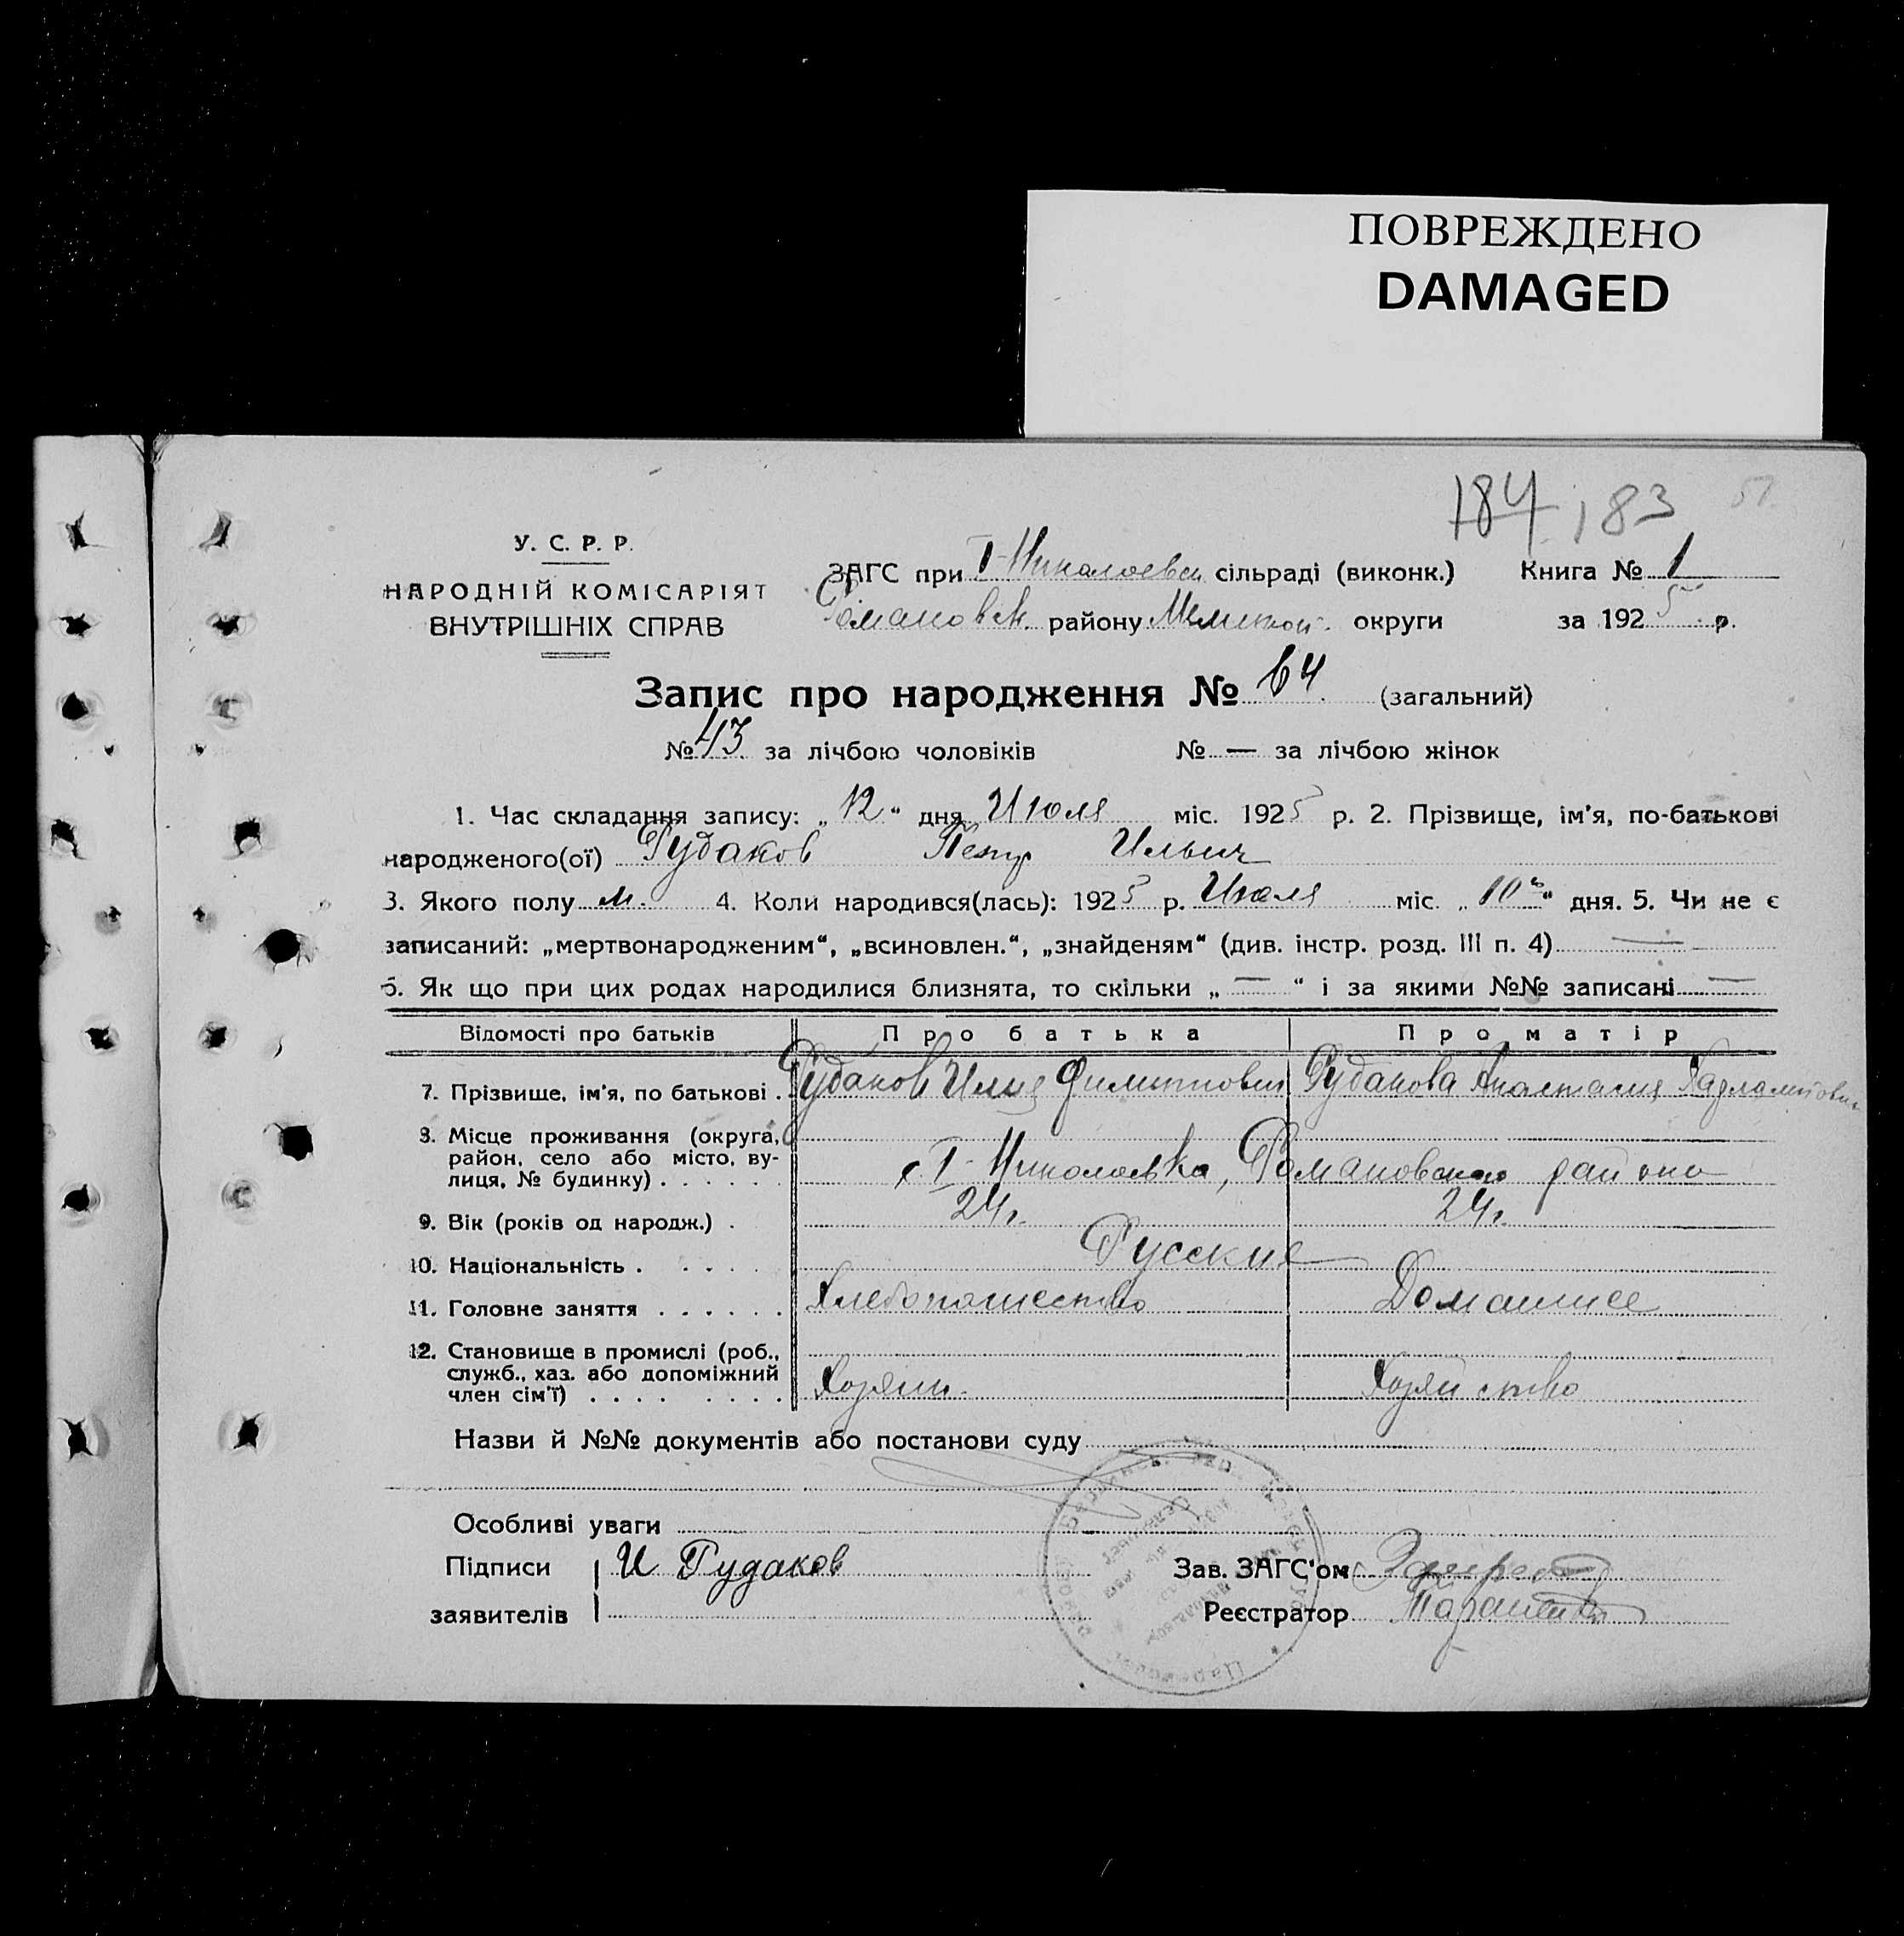 ПОВРЕЖДЕНО
DAMAGED
184 183 51.
У. С. Р. Р.
НАРОДНІЙ КОМІСАРІЯТ
ВНУТРІШНІХ СПРАВ
ЗАГС при I-Николаевск сільраді (виконк.) Книга № 1
Романовск. району Мелитоп. округи за 1925 р.
Запис про народження № 64. (загальний)
№ 43 за лічбою чоловіків № — за лічбою жінок
1. Час складання запису: „12“ дня Июля міс. 1925 р. 2. Прізвище, ім'я, по-батькові
народженого(ої) Рудаков Петр Ильич
3. Якого полу м. 4. Коли народився(лась): 1925 р. Июля міс. „10“ дня. 5. Чи не є
записаний: „мертвонародженим“, „всиновлен.“, „знайденям“ (див. інстр. розд. III п. 4) —
6. Як що при цих родах народилися близнята, то скільки „ — “ і за якими №№ записані —
Відомості про батьків Про батька Про матір
7. Прізвище, ім'я, по батькові . Рудаков Илья Филиппович Рудакова Анастасия
8. Місце проживання (округа,
район, село або місто, ву-
лиця, № будинку) . . . . . . с. I-Николаевка, Романовского района
9. Вік (років од народж.) . 24 г. 24 г.
10. Національність . . . . . Русские
11. Головне заняття . . . . . . Хлебопашество Домашнее
12. Становище в промислі (роб.,
служб., хаз. або допоміжний
член сім'ї) . . . . . . . . Хозяин. Хозяйство
Назви й №№ документів або постанови суду
Особливі уваги
Підписи И Рудаков Зав. ЗАГС'ом
заявителів Реєстратор